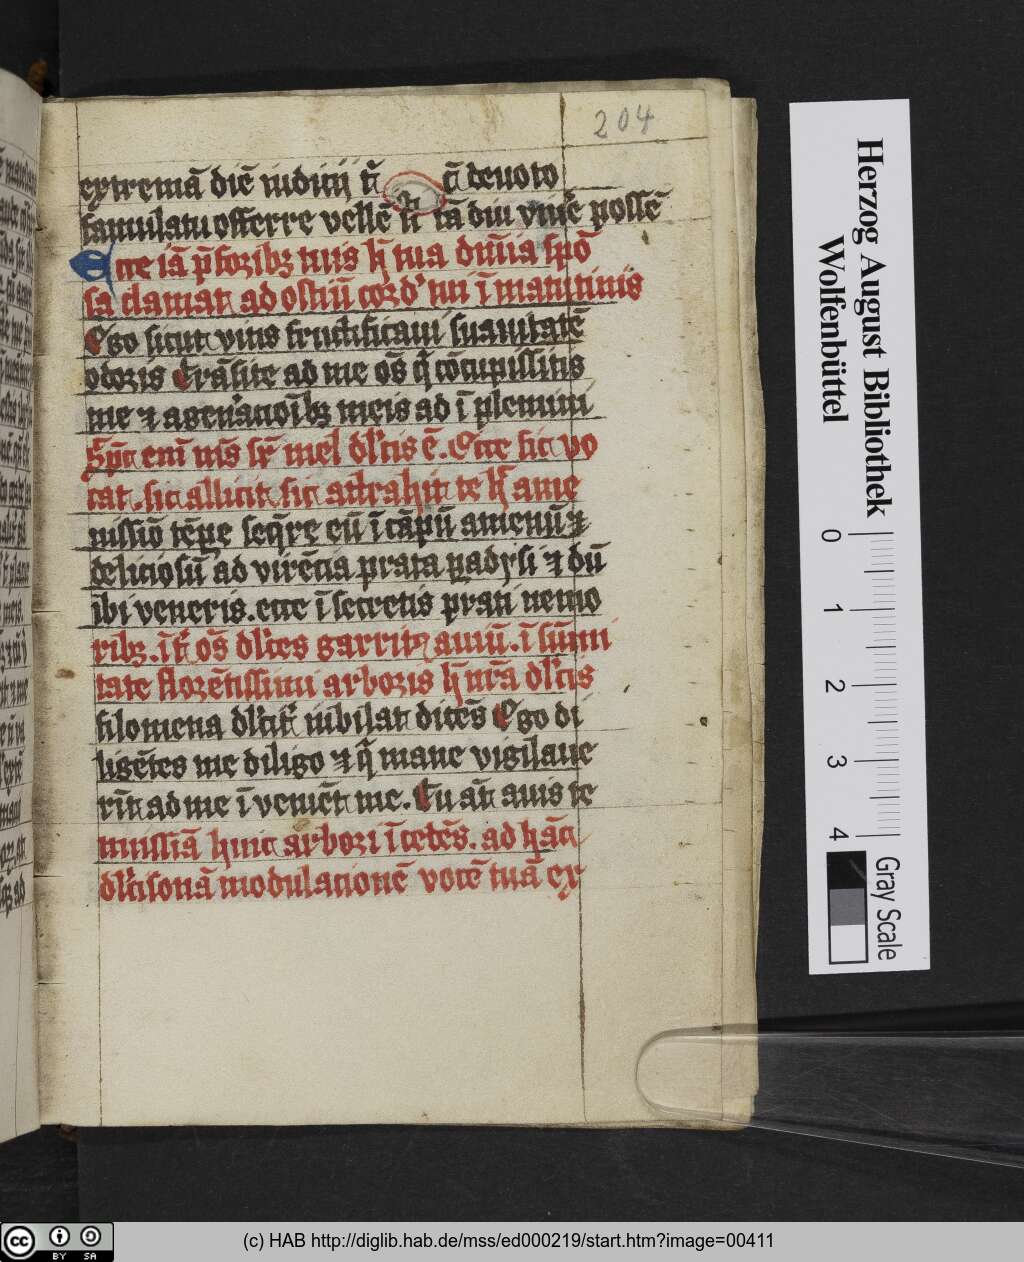 204
extremā diē iudicij tī cū deuoto
famulatu offerre vellē tī tā diu viue͛ possē
Ecce iā p̄ foribꝫ tuis hͥ tua diuīa spō
sa clamat ad ostiū cord͛ tui ī matutinis
Ego sicut vitis fructificaui suauitatē
odoris Trāsite ad me oēs qͥ cōcupiscitis
me ⁊ a gen͛acioībꝫ meis ad īplemini
Sp̄c enī m̄s sr̄ mel dl͛cis ē. Ecce sic vo
cat. sic allicit sic attrahit te hͥ ame
nissiō tēpe seq̄re eū ī cāpū amenū ⁊
deliciosū ad virēcia prata padysi ⁊ dū
ibi veneris. ecce ī secretis prati nemo
ribꝫ. īt͛ oēs dl͛ces garrit͛ auiū. ī sūmi
tate florētissimi arboris hͥ nr̄a dl͛cis
filomena dl͛cit͛ iubilat dicēs Ego di
ligētes me diligo ⁊ qͥ mane vigilaue
rīt ad me īveniēt me. Tu āt auis te
missiā huic arbori īcetēs. ad hāc
dl͛cisonā modulacionē vocē tuā ex
Herzog August Bibliothek
Wolfenbüttel
0 1 2 3 4
Gray Scale
cc BY SA
(c) HAB http://diglib.hab.de/mss/ed000219/start.htm?image=00411